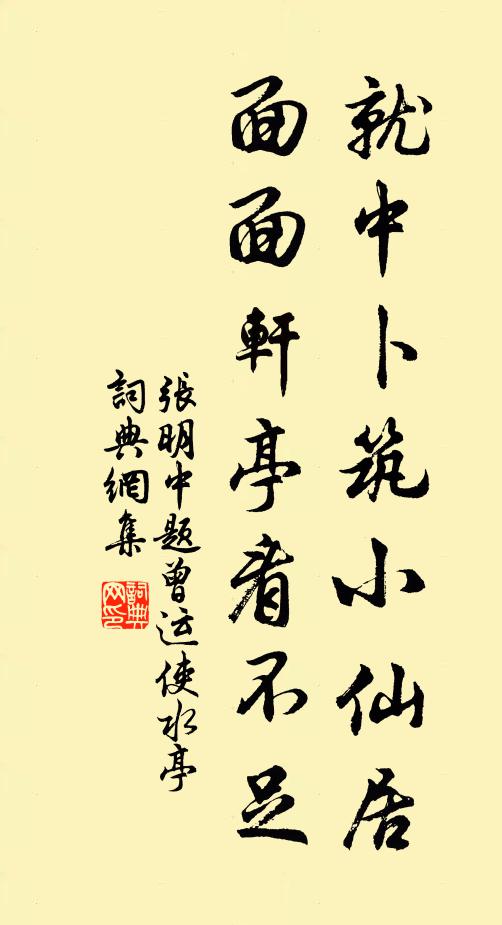 就中卜筑小仙居
面面軒亭看不足
張明中題曾运使水亭
詞典網集
詞典网印